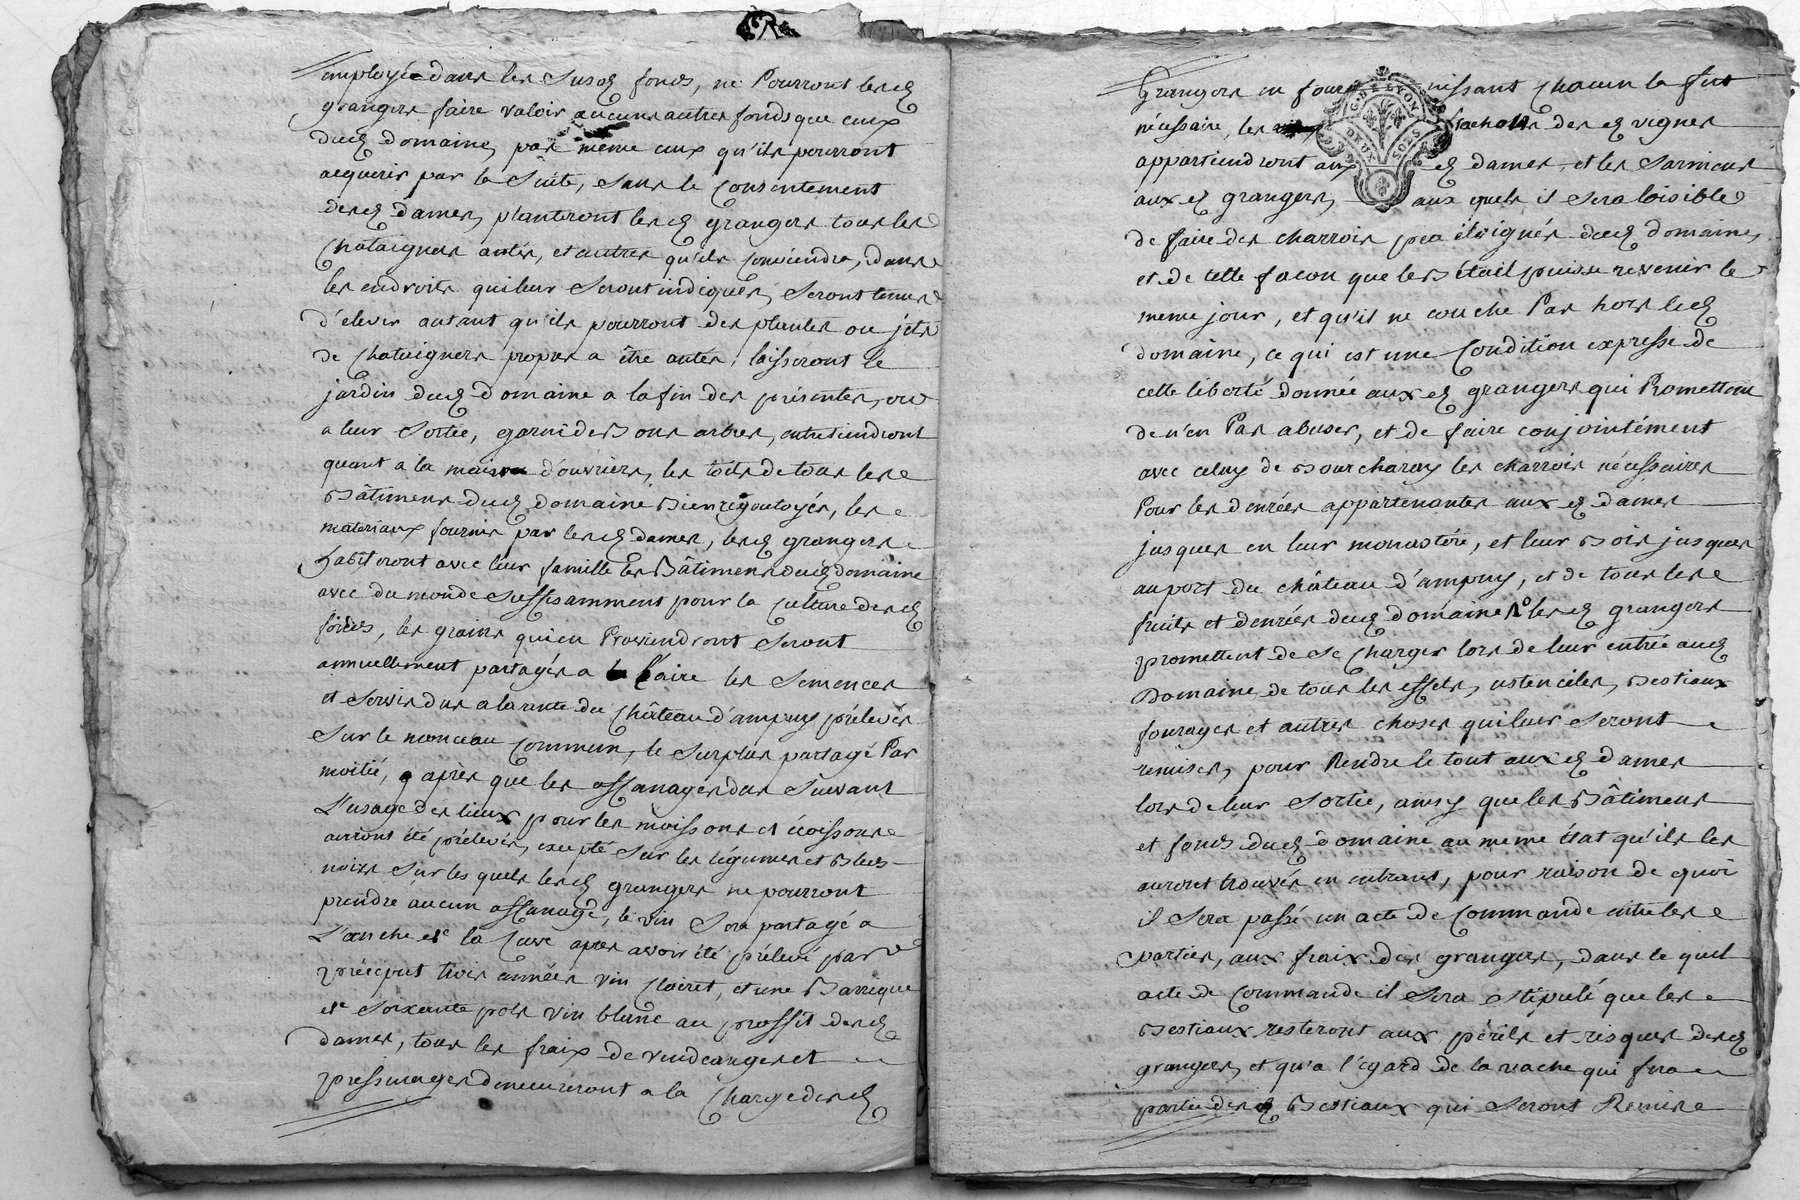 employée dans les susd fonds, ne Pourront lesd
grangers faire valoir aucuns autres fonds que ceux
dud domaine, pas même ceux qu'ils pourront
acquerir par la Suite, sans le Consentement
desd dames, planteront lesd grangers tous les
Chataigners antés, et autres qu'ils Conviendra, dans
les endroits qui leur Seront indiqués, Seront tenus
d'élever autant qu'ils pourront des plantes ou jets
de Chataigners propres a être antés, laisseront le
jardin dud domaine a la fin des présentes, ou
a leur Sortie, garni de Bons arbres, entretiendront
quant a la main d'ouvriers, les toits de tous les
Bâtimens dud domaine Bien regoutoyés, les
materiaux fournis par lesd dames, lesd grangers
habiteront avec leur famille les Bâtimens dud domaine
avec du monde Suffisamment pour la Culture desd
fonds, les grains qui en Proviendront Seront
annuellement partagés a l'aire les Semences
et Servis dus a la rante du Château d'ampuy préleves
Sur le monceau Commun, le Surplus partagé Par
moitié, après que les affanages dus Suivant
L'usage des lieux pour les moissons et écossons
auront été prélevés, excepté Sur les légumes et Bleds
noirs Sur les quels lesd grangers ne pourront
prendre aucun affanage, le vin Sera partagé a
L'anche de la Cuve apres avoir été prélevé par
préciput trois années vin Clairet, et une Barrique
de Soixante pots vin blanc au proffit desd
dames, tous les fraix de vendanges et
pressurages demeureront a la Charge desd
Grangers en fournissant Chacun la fut
nécessaire, les des d vignes
appartiendront aux d dames, et les Sarmens
aux d grangers, aux quels il Sera loisible
de faire des charrois peu éloignés dud domaine,
et de telle facon que le Bétail puisse revenir le
meme jour, et qu'il ne couche Pas hors led
domaine, ce qui est une Condition expresse de
cette liberté donnée aux d grangers qui Promettent
de n'en Pas abuser, et de faire conjointément
avec celuy de Bourcharay les charrois nécessaires
Pour les denrées appartenantes aux d dames
jusques en leur monastére, et leur Bois jusques
au port du château d'ampuy, et de tous les
fruits et denrées dud domaine lesd grangers
promettent de se Charger lors de leur entrée aud
Domaine de tous les effets, ustenciles, Bestiaux
fourages et autres choses qui leur Seront
remises, pour Rendre le tout aux d dames
lors de leur Sortie, ainsy que les Bâtimens
et fonds dud domaine au meme état qu'ils les
auront trouvés en entrant, pour raison de quoi
il Sera passé un acte de Commande entre les
parties, aux fraix des grangers, dans le quel
acte de Commande il Sera Stipulé que les
Bestiaux resteront aux périls et risques desd
grangers, et qu'a l'égard de la vache qui fera
partie desd Bestiaux qui Seront Remis
G. DE LYON
DEUX SOLS